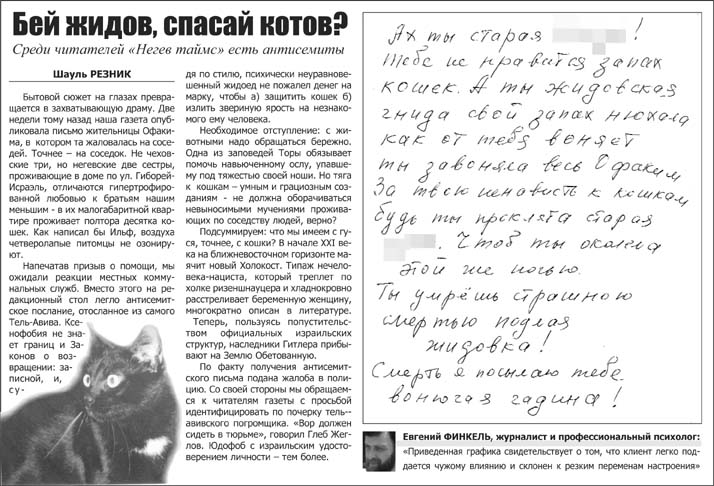 Бей жидов, спасай котов?
Среди читателей «Негев таймс» есть антисемиты
Шауль РЕЗНИК
Бытовой сюжет на глазах превра-
щается в захватывающую драму. Две
недели тому назад наша газета опу-
бликовала письмо жительницы Офаки-
ма, в котором та жаловалась на сосе-
дей. Точнее – на соседок. Не чехов-
ские три, но негевские две сестры,
проживающие в доме по ул. Гиборей-
Исраэль, отличаются гипертрофиро-
ванной любовью к братьям нашим
меньшим - в их малогабаритной квар-
тире проживает полтора десятка ко-
шек. Как написал бы Ильф, воздуха
четверолапые питомцы не озониру-
ют.
Напечатав призыв о помощи, мы
ожидали реакции местных комму-
нальных служб. Вместо этого на ре-
дакционный стол легло антисемит-
ское послание, отосланное из самого
Тель-Авива. Ксе-
нофобия не зна-
ет границ и За-
конов о воз-
вращении: за-
писной, и,
су-
дя по стилю, психически неуравнове-
шенный жидоед не пожалел денег на
марку, чтобы а) защитить кошек б)
излить звериную ярость на незнако-
мого ему человека.
Необходимое отступление: с жи-
вотными надо обращаться бережно.
Одна из заповедей Торы обязывает
помочь навьюченному ослу, упавше-
му под тяжестью своей ноши. Но тяга
к кошкам – умным и грациозным соз-
даниям - не должна оборачиваться
невыносимыми мучениями прожива-
ющих по соседству людей, верно?
Подсуммируем: что мы имеем с гу-
ся, точнее, с кошки? В начале XXI ве-
ка на ближневосточном горизонте ма-
ячит новый Холокост. Типаж нечело-
века-нациста, который треплет по
холке ризеншнауцера и хладнокровно
расстреливает беременную женщину,
многократно описан в литературе.
Теперь, пользуясь попустительст-
вом официальных израильских
структур, наследники Гитлера прибы-
вают на Землю Обетованную.
По факту получения антисемит-
ского письма подана жалоба в поли-
цию. Со своей стороны мы обращаем-
ся к читателям газеты с просьбой
идентифицировать по почерку тель-
авивского погромщика. «Вор должен
сидеть в тюрьме», говорил Глеб Жег-
лов. Юдофоб с израильским удосто-
верением личности – тем более.
Ах ты старая !
Тебе не нравится запах
кошек. А ты жидовская
гнида свой запах нюхала
как от тебя воняет
ты завоняла весь Офаким
За твою ненависть к кошкам
будь ты проклята старая
. Чтоб ты околела
этой же ночью.
Ты умрёшь страшною
смертью подлая
жидовка!
Смерть я посылаю тебе
вонючая гадина!
Евгений ФИНКЕЛЬ, журналист и профессиональный психолог:
«Приведенная графика свидетельствует о том, что клиент легко под-
дается чужому влиянию и склонен к резким переменам настроения»